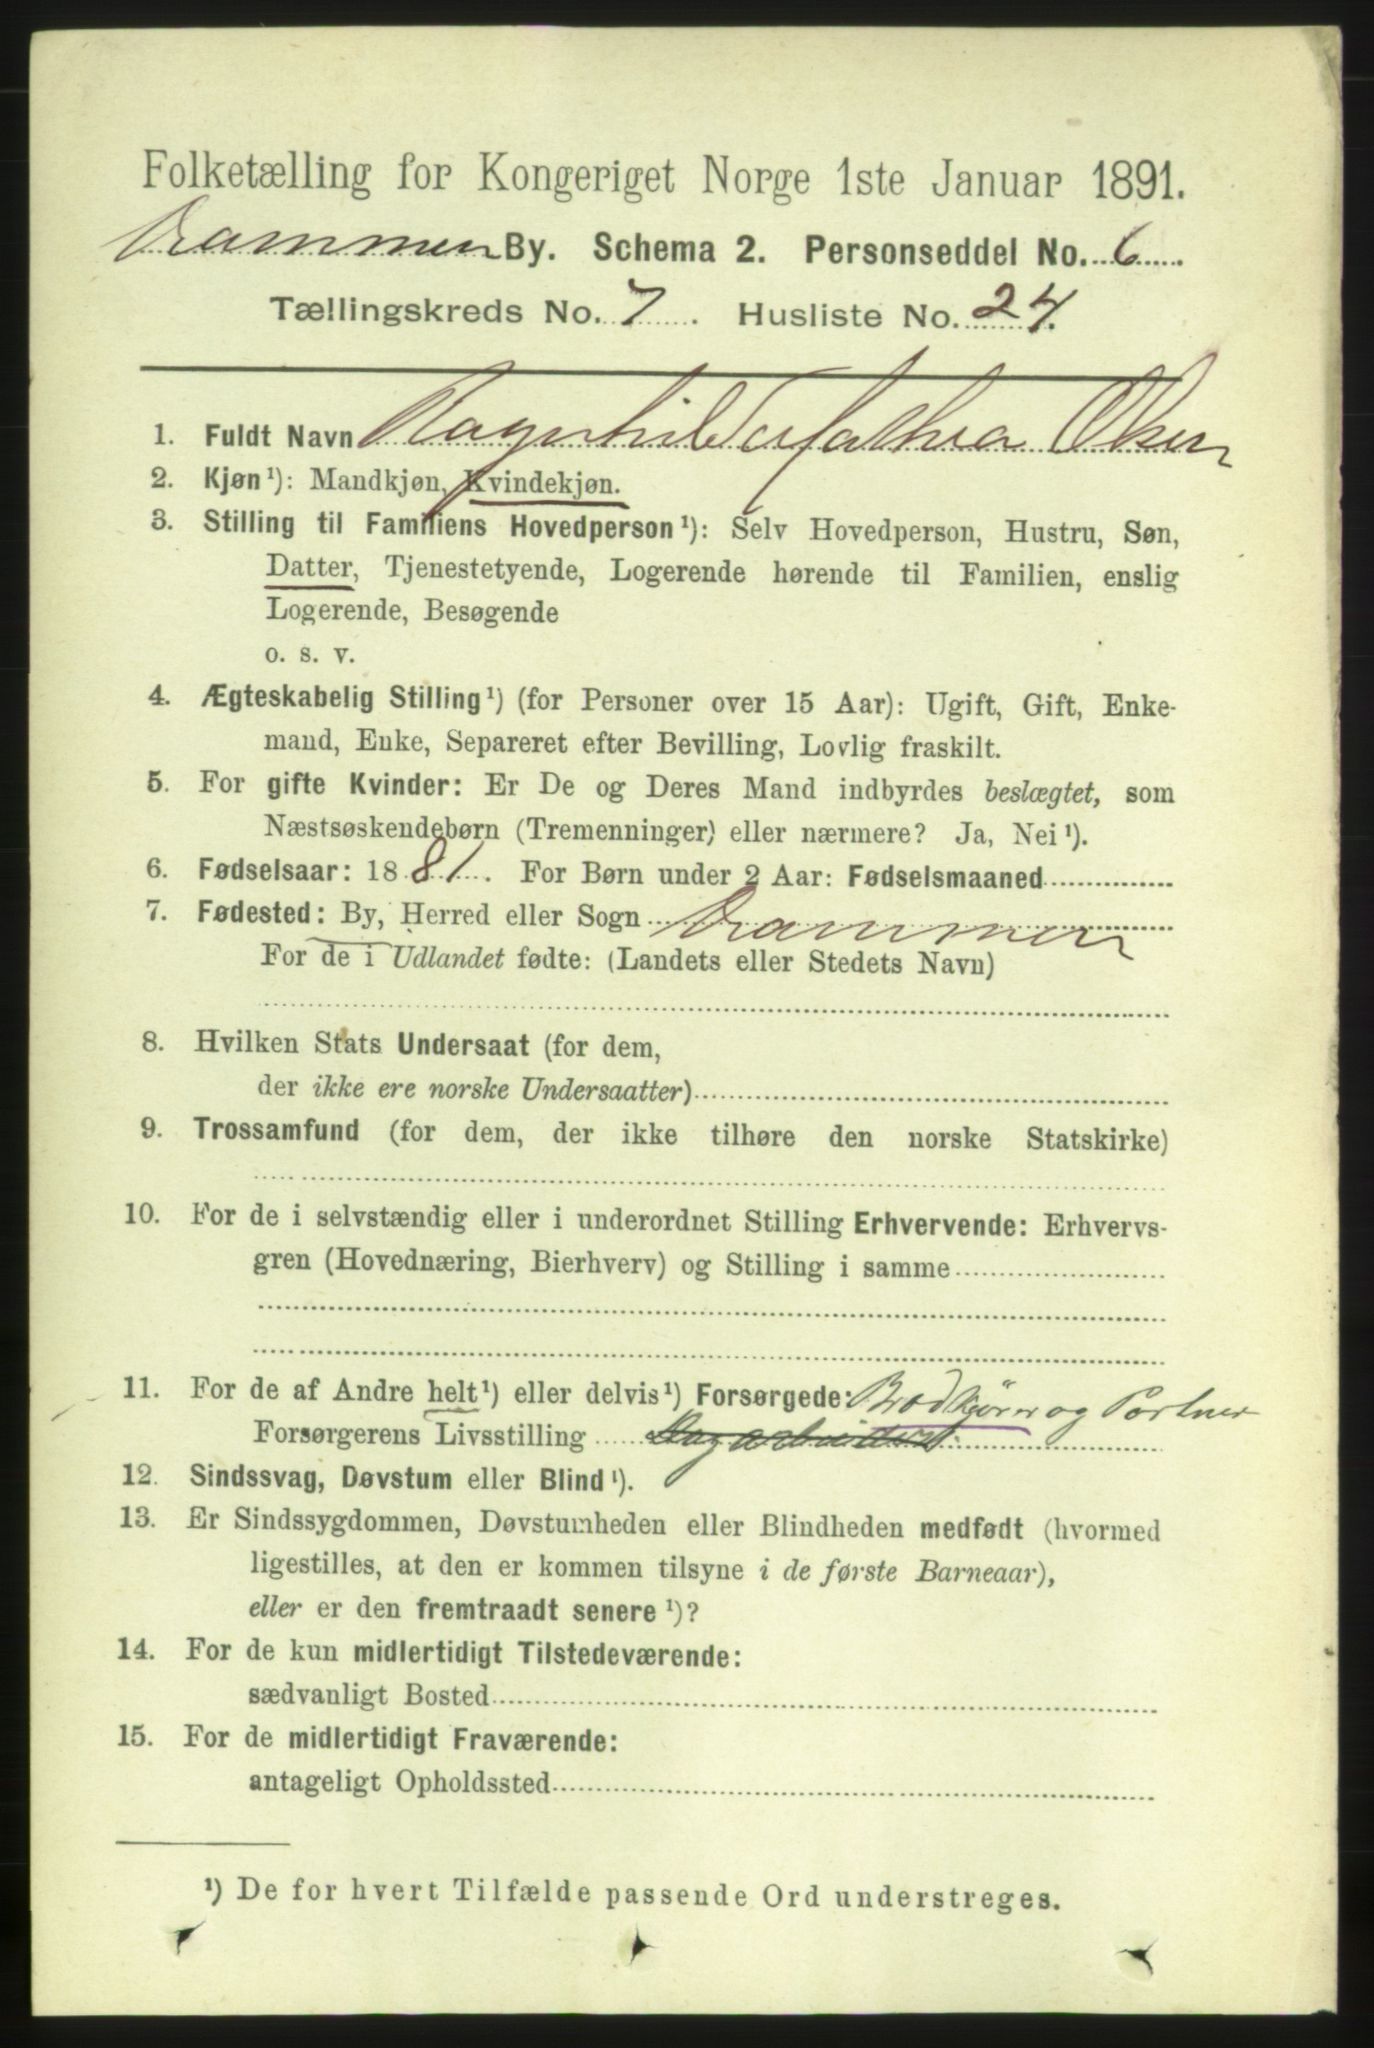 Folketælling for Kongeriget Norge 1ste Januar 1891.
Drammen By. Schema 2. Personseddel No. 6
Tællingskreds No. 7. Husliste No. 24.
1. Fuldt Navn Ragnhild Olsen
2. Kjøn ¹): Mandkjøn, Kvindekjøn.
3. Stilling til Familiens Hovedperson ¹): Selv Hovedperson, Hustru, Søn,
Datter, Tjenestetyende, Logerende hørende til Familien, enslig
Logerende, Besøgende
o. s. v.
4. Ægteskabelig Stilling ¹) (for Personer over 15 Aar): Ugift, Gift, Enke-
mand, Enke, Separeret efter Bevilling, Lovlig fraskilt.
5. For gifte Kvinder: Er De og Deres Mand indbyrdes beslægtet, som
Næstsøskendebørn (Tremenninger) eller nærmere? Ja, Nei ¹).
6. Fødselsaar: 1881. For Børn under 2 Aar: Fødselsmaaned
7. Fødested: By, Herred eller Sogn Drammen
For de i Udlandet fødte: (Landets eller Stedets Navn)
8. Hvilken Stats Undersaat (for dem,
der ikke ere norske Undersaatter)
9. Trossamfund (for dem, der ikke tilhøre den norske Statskirke)
10. For de i selvstændig eller i underordnet Stilling Erhvervende: Erhvervs-
gren (Hovednæring, Bierhverv) og Stilling i samme
11. For de af Andre helt ¹) eller delvis ¹) Forsørgede: Brødkjører og Portner
Forsørgerens Livsstilling Dagarbeider
12. Sindssvag, Døvstum eller Blind ¹).
13. Er Sindssygdommen, Døvstumheden eller Blindheden medfødt (hvormed
ligestilles, at den er kommen tilsyne i de første Barneaar),
eller er den fremtraadt senere ¹)?
14. For de kun midlertidigt Tilstedeværende:
sædvanligt Bosted
15. For de midlertidigt Fraværende:
antageligt Opholdssted
¹) De for hvert Tilfælde passende Ord understreges.